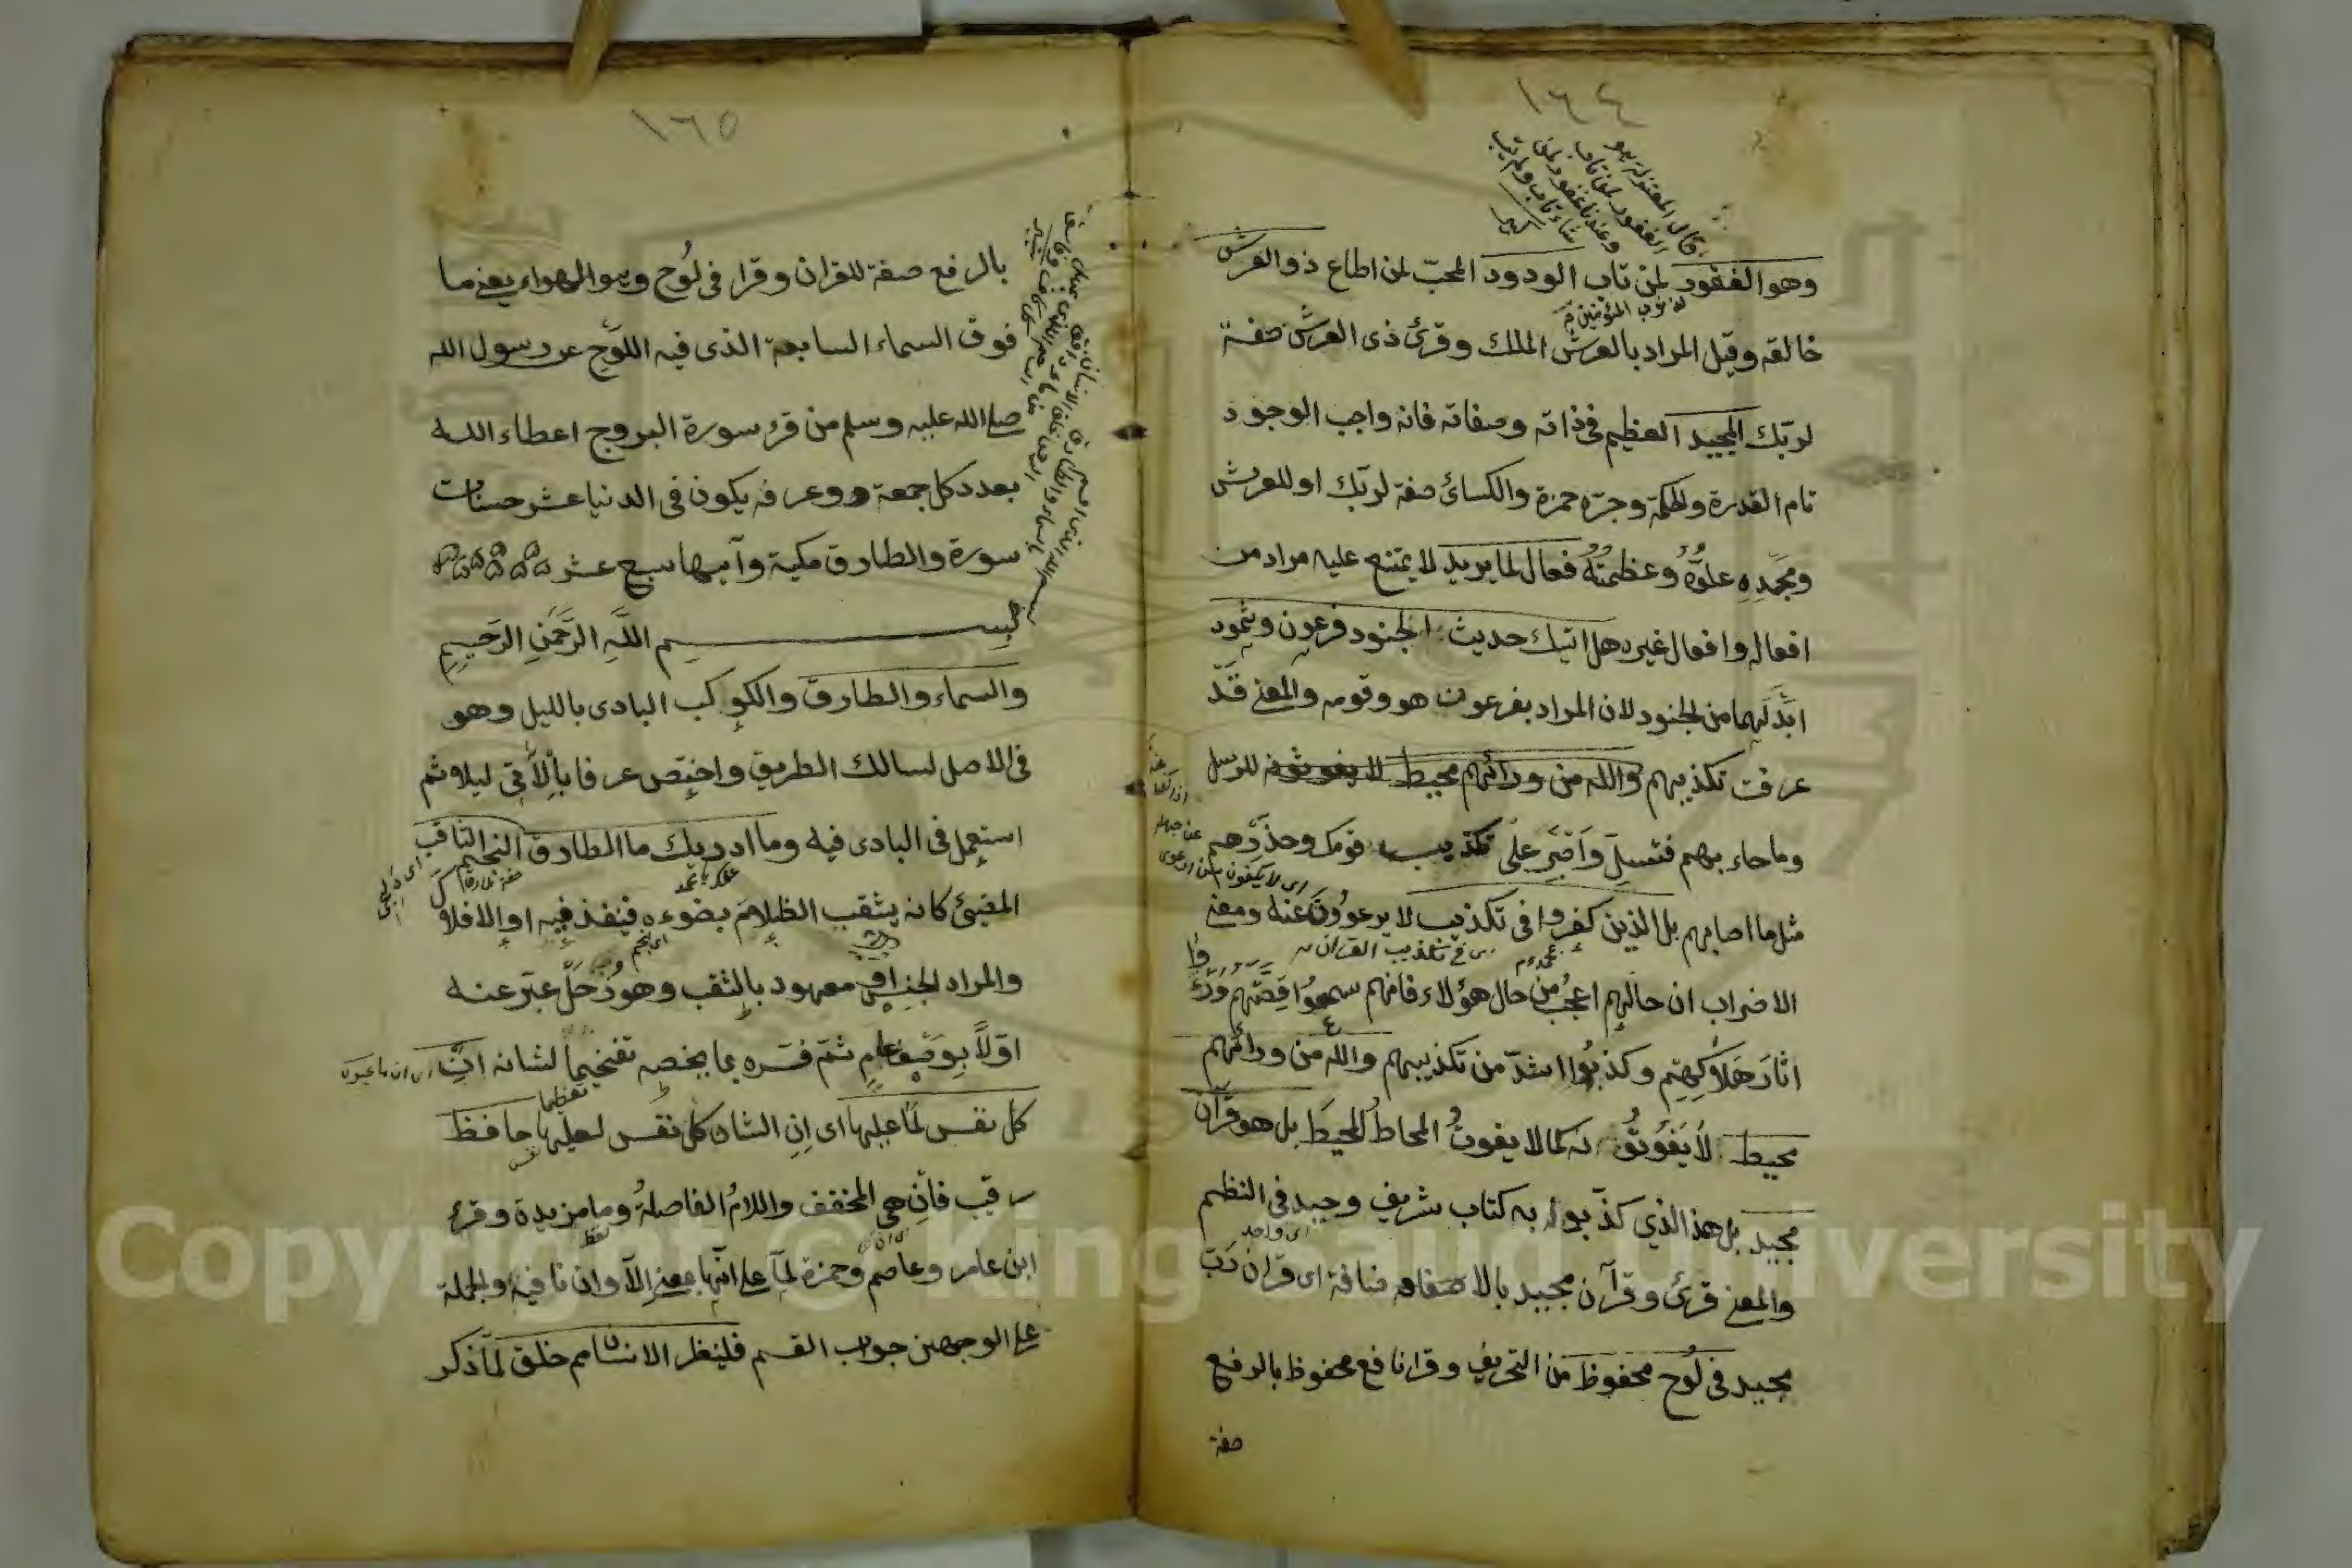 ١٦٤
قال المعتزلة هو
الغفور لمن تاب
وعندنا غفور لمن
شاء تاب ولم يتب
وهو الغفور لمن تاب الودود المحبّ لمن اطاع ذو العرش
لذنوب المؤمنين
خالقه وقيل المراد بالعرش الملك وقرئ ذى العرش صفة
لربّك المجيد العظيم فى ذاته وصفاته فانه واجب الوجود
تام القدرة والحكمة وجرّه حمزة والكسائ صفة لربّك او للعرش
ومجده علوُّهُ وعظمتُهُ فعال لما يريد لا يمتنع عليه مراد من
افعاله وافعال غيره هل اتيك حديث الجنود فرعون وثمود
ابدلهما من الجنود لان المراد بفرعون هو وقومه والمعنى قد
عرفت تكذيبهم والله من ورائهم محيط لا يفوتونه للرسل
وماحاء بهم فتسلّ واصبر على تكذيب قومك وحذّرهم
مثل ما اصابهم بل الذين كفروا فى تكذيب لا يرعوون عنه ومعنى
الاضراب ان حالهم اعجب من حال هؤلاء فانهم سمعوا قصّتهم ورأوا
اثار هلاكهم وكذبوا اشدّ من تكذيبهم والله من ورائهم
محيط لا يفوتونه كما لا يفوت المحاط المحيط بل هو قرآن
مجيد بل هذا الذي كذّبوا به كتاب شريف وحيد فى النظم
اى واحد
والمعنى قرئ وقرآن مجيد بالاضافة اى قرآن ربّ
مجيد فى لوح محفوظ من التحريف وقرا نافع محفوظ بالرفع
صفة
١٦٥
بالرفع صفة للقران وقرا فى لُوح وهو الهواء يعنى ما
فوق السماء السابعة الذى فيه اللوح عن رسول الله
صلى الله عليه وسلم من قرء سورة البروج اعطاء الله
بعدد كل جمعة وعرفه يكون فى الدنيا عشر حسنات
سورة والطارق مكية وآيها سبع عشر
بسم اللّه الرَّحمَنِ الرَحيمِ
والسماء والطارق والكوكب البادى بالليل وهو
فى الاصل لسالك الطريق واختصّ عرفا بالآتى ليلا ثم
استعمل فى البادى فيه وما ادريك ما الطارق النجم الثاقب
المضيئ كانه يثقب الظلام بضوءه فينفذ فيه او الافلاك
والمراد الجنس او معهود بالثقب وهو زحل عبّر عنه
اوّلا بوصف عام ثمّ فسّره بما يخصه تفخيما لشانه ان
تعظيما
كل نفس لما عليها اى ان الشان كل نفس لعليها حافظ
رقيب فان هى المخفف واللام الفاصلة وما مزيدة وقرئ
ابن عامر وعاصم وحمزة لمّا على انها بمعنى الاّ وان نافية والجملة
على الوجهين جواب القسم فلينظر الانسان مم خلق لما ذكر